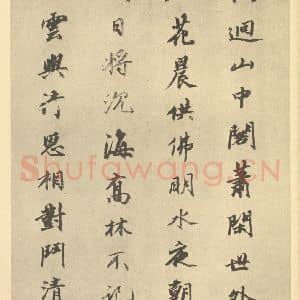 迥山中閣蕭閑世外
花晨供佛明水夜朝
日將沉海高林不記
雲與行思相對鬥清
Shufawang.CN